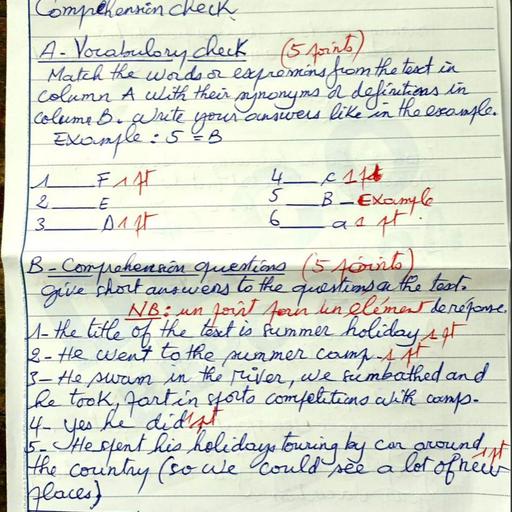 Comprehension check
A - Vocabulary check (5 points)
Match the words or expressions from the text in
column A with their synonyms or definitions in
column B. Write your answers like in the example.
Example : 5 = B
1 ___ F 1 pt 4 ___ C 1 pt
2 ___ E 5 ___ B - Example
3 ___ D 1 pt 6 ___ a 1 pt.
B - Comprehension questions (5 points)
give short answers to the questions on the text.
NB : un point pour un élément de reponse.
1 - the title of the text is summer holiday 1 pt
2 - He went to the summer camp. 1 pt
3 - He swam in the river, we sumbathed and
he took, part in sports competitions with camp.
4 - yes he did 1 pt
5 - He spent his holidays touring by car around 1 pt
the country (so we could see a lot of new
places)